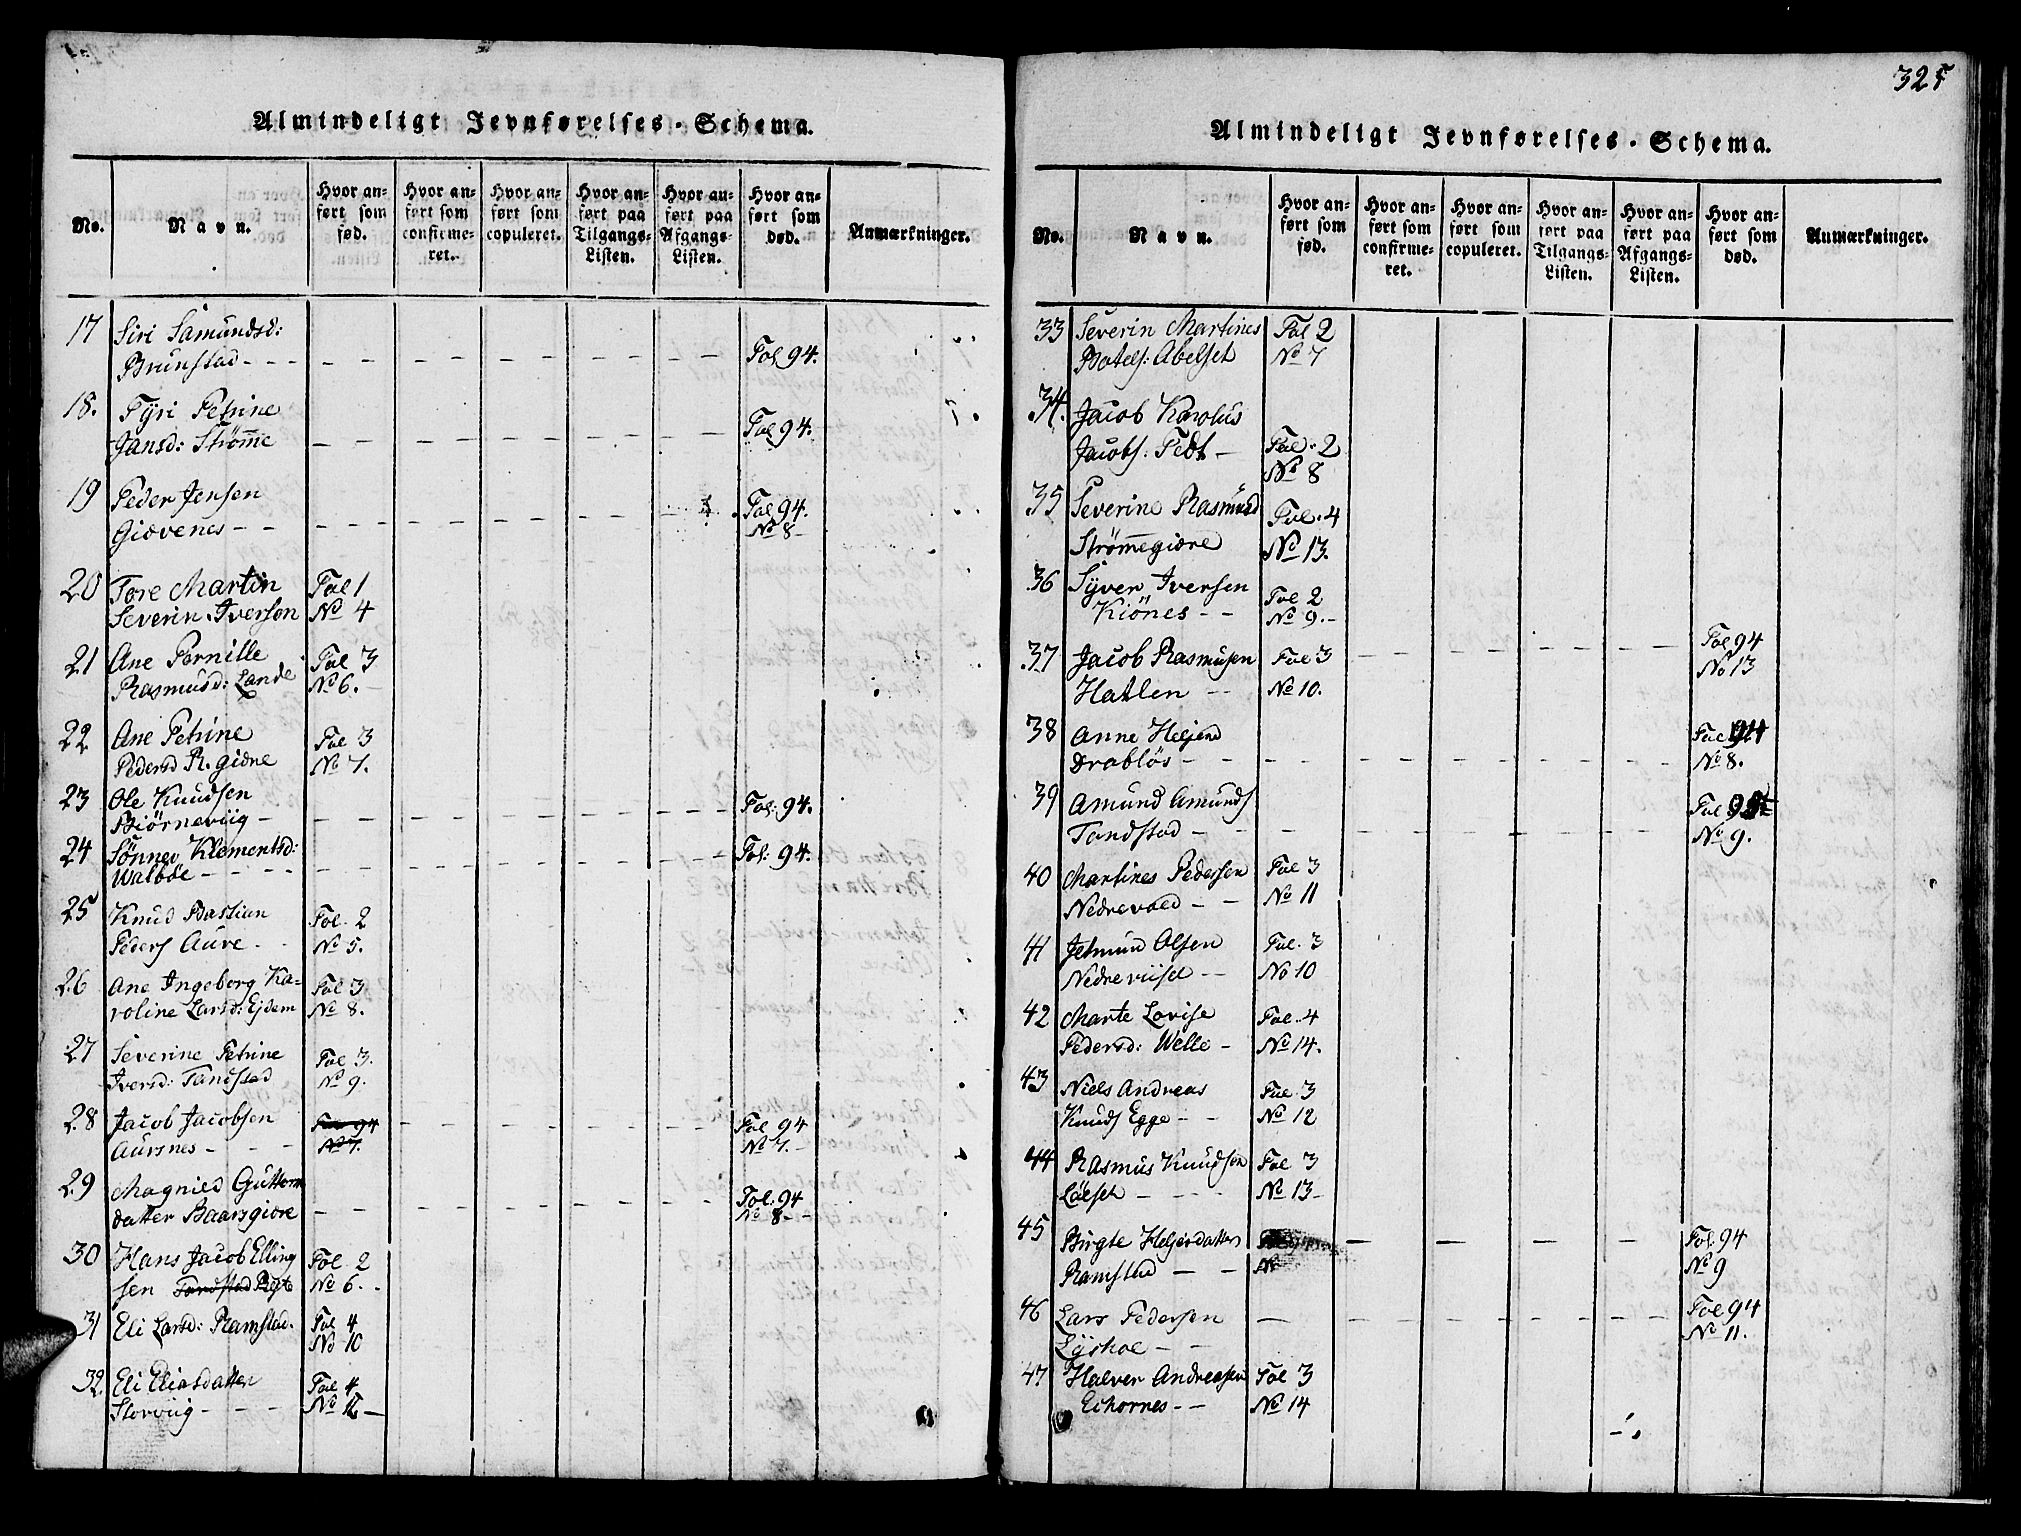 Almindeligt Jevnførelses-Schema.
No.
Navn.
Hvor an-
ført som
fød.
Hvor an-
ført som
confirme-
ret.
Hvor an-
ført som
copuleret.
Hvor an-
ført paa
Tilgangs-
Listen.
Hvor an-
ført paa
Afgangs-
Listen.
Hvor an-
ført som
død.
Anmærkninger.
17 Siri Samundsd:
Brunstad - - - Fol 94.
18. Tÿri Petrine
Jansd: Strømme Fol 94.
19 Peder Jensen Fol 94.
Giævenes - - No 8 -
20 Tore Martin Fol 1
Severin Iversøn No 4
21 Ane Pernille Fol 3
Rasmusd: Lande No 6. -
22 Ane Petrine Fol 3
Pedersd R. giære No 7.
23 Ole Knudsen
Biörneviig - Fol: 94.
24 Sönnev Klementsd:
Walböe - - - - Fol: 94.
25 Knud Bastian Fol. 2
Peders Aure - No 5.
26 Ane Ingeborg Ka- Fol 3
roline Larsd: Ejdem No 8.
27 Severine Petrine Fol 3.
Iversd: Tandstad No 9.
28 Jacob Jacobsen Fol 94 Fol 94
Aursnes - - - No 7. No 7. -
29 Magnild Guttorm
datter Baarsgiære Fol: 94
No 8 - -
30 Hans Jacob Elling Fol 2
sen Tandstad No 6. -
31 Eli Larsd: Ramstad. Fol 4
No 10
32. Eli Eliasdatter Fol 4
Storviig - - - No 12 -
325
Almindeligt Jevnførelses-Schema.
No.
Navn.
Hvor an-
ført som
fød.
Hvor an-
ført som
confirme-
ret.
Hvor an-
ført som
copuleret.
Hvor an-
ført paa
Tilgangs-
Listen.
Hvor an-
ført paa
Afgangs-
Listen.
Hvor an-
ført som
død.
Anmærkninger.
33 Severin Martines Fol 2
Botels: Abelset No 7
34. Jacob Karolus
Jacobs: Fedt - Fol. 2
No 8
35 Severine Rasmusd Fol. 4
Strømmegiære No 13.
36 Sÿver Iversen Fol 2
Kiönes - - No 9. -
37 Jacob Rasmusen Fol 3 Fol 94
Hatlen - - No 10. No 13
38 Anne Heljesd Fol 94
Drablös - - No 8.
39 Amund Amunds Fol 94
Tandstad - - No 9.
40 Martines Pedersen Fol 3
Nedrevold - - No 11
41 Jetmund Olsen Fol. 3
Nedreviisd - - No 10
42 Marte Lovise Fol. 4
Pedersd: Welle - No 14.
43 Niels Andreas Fol. 3
Knuds Egge - - No 12
44 Rasmus Knudsøn Fol 3
Löeset - - - - No 13 -
45 Birgte Heljesdatter Fol. 94
Ramstad - - No No 9
46 Lars Pedersen Fol 94
Lÿshoe - - No 11.
47 Halver Andreasen Fol 3
Eckornes - - No 14